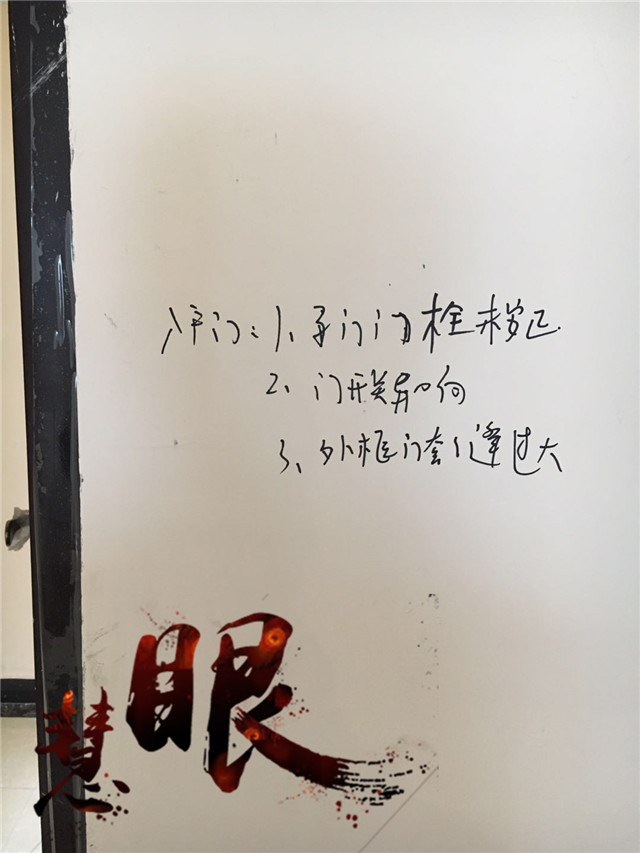 入户门：1、子门门栓未安正
2、门开关异响
3、外框门套缝过大
慧眼